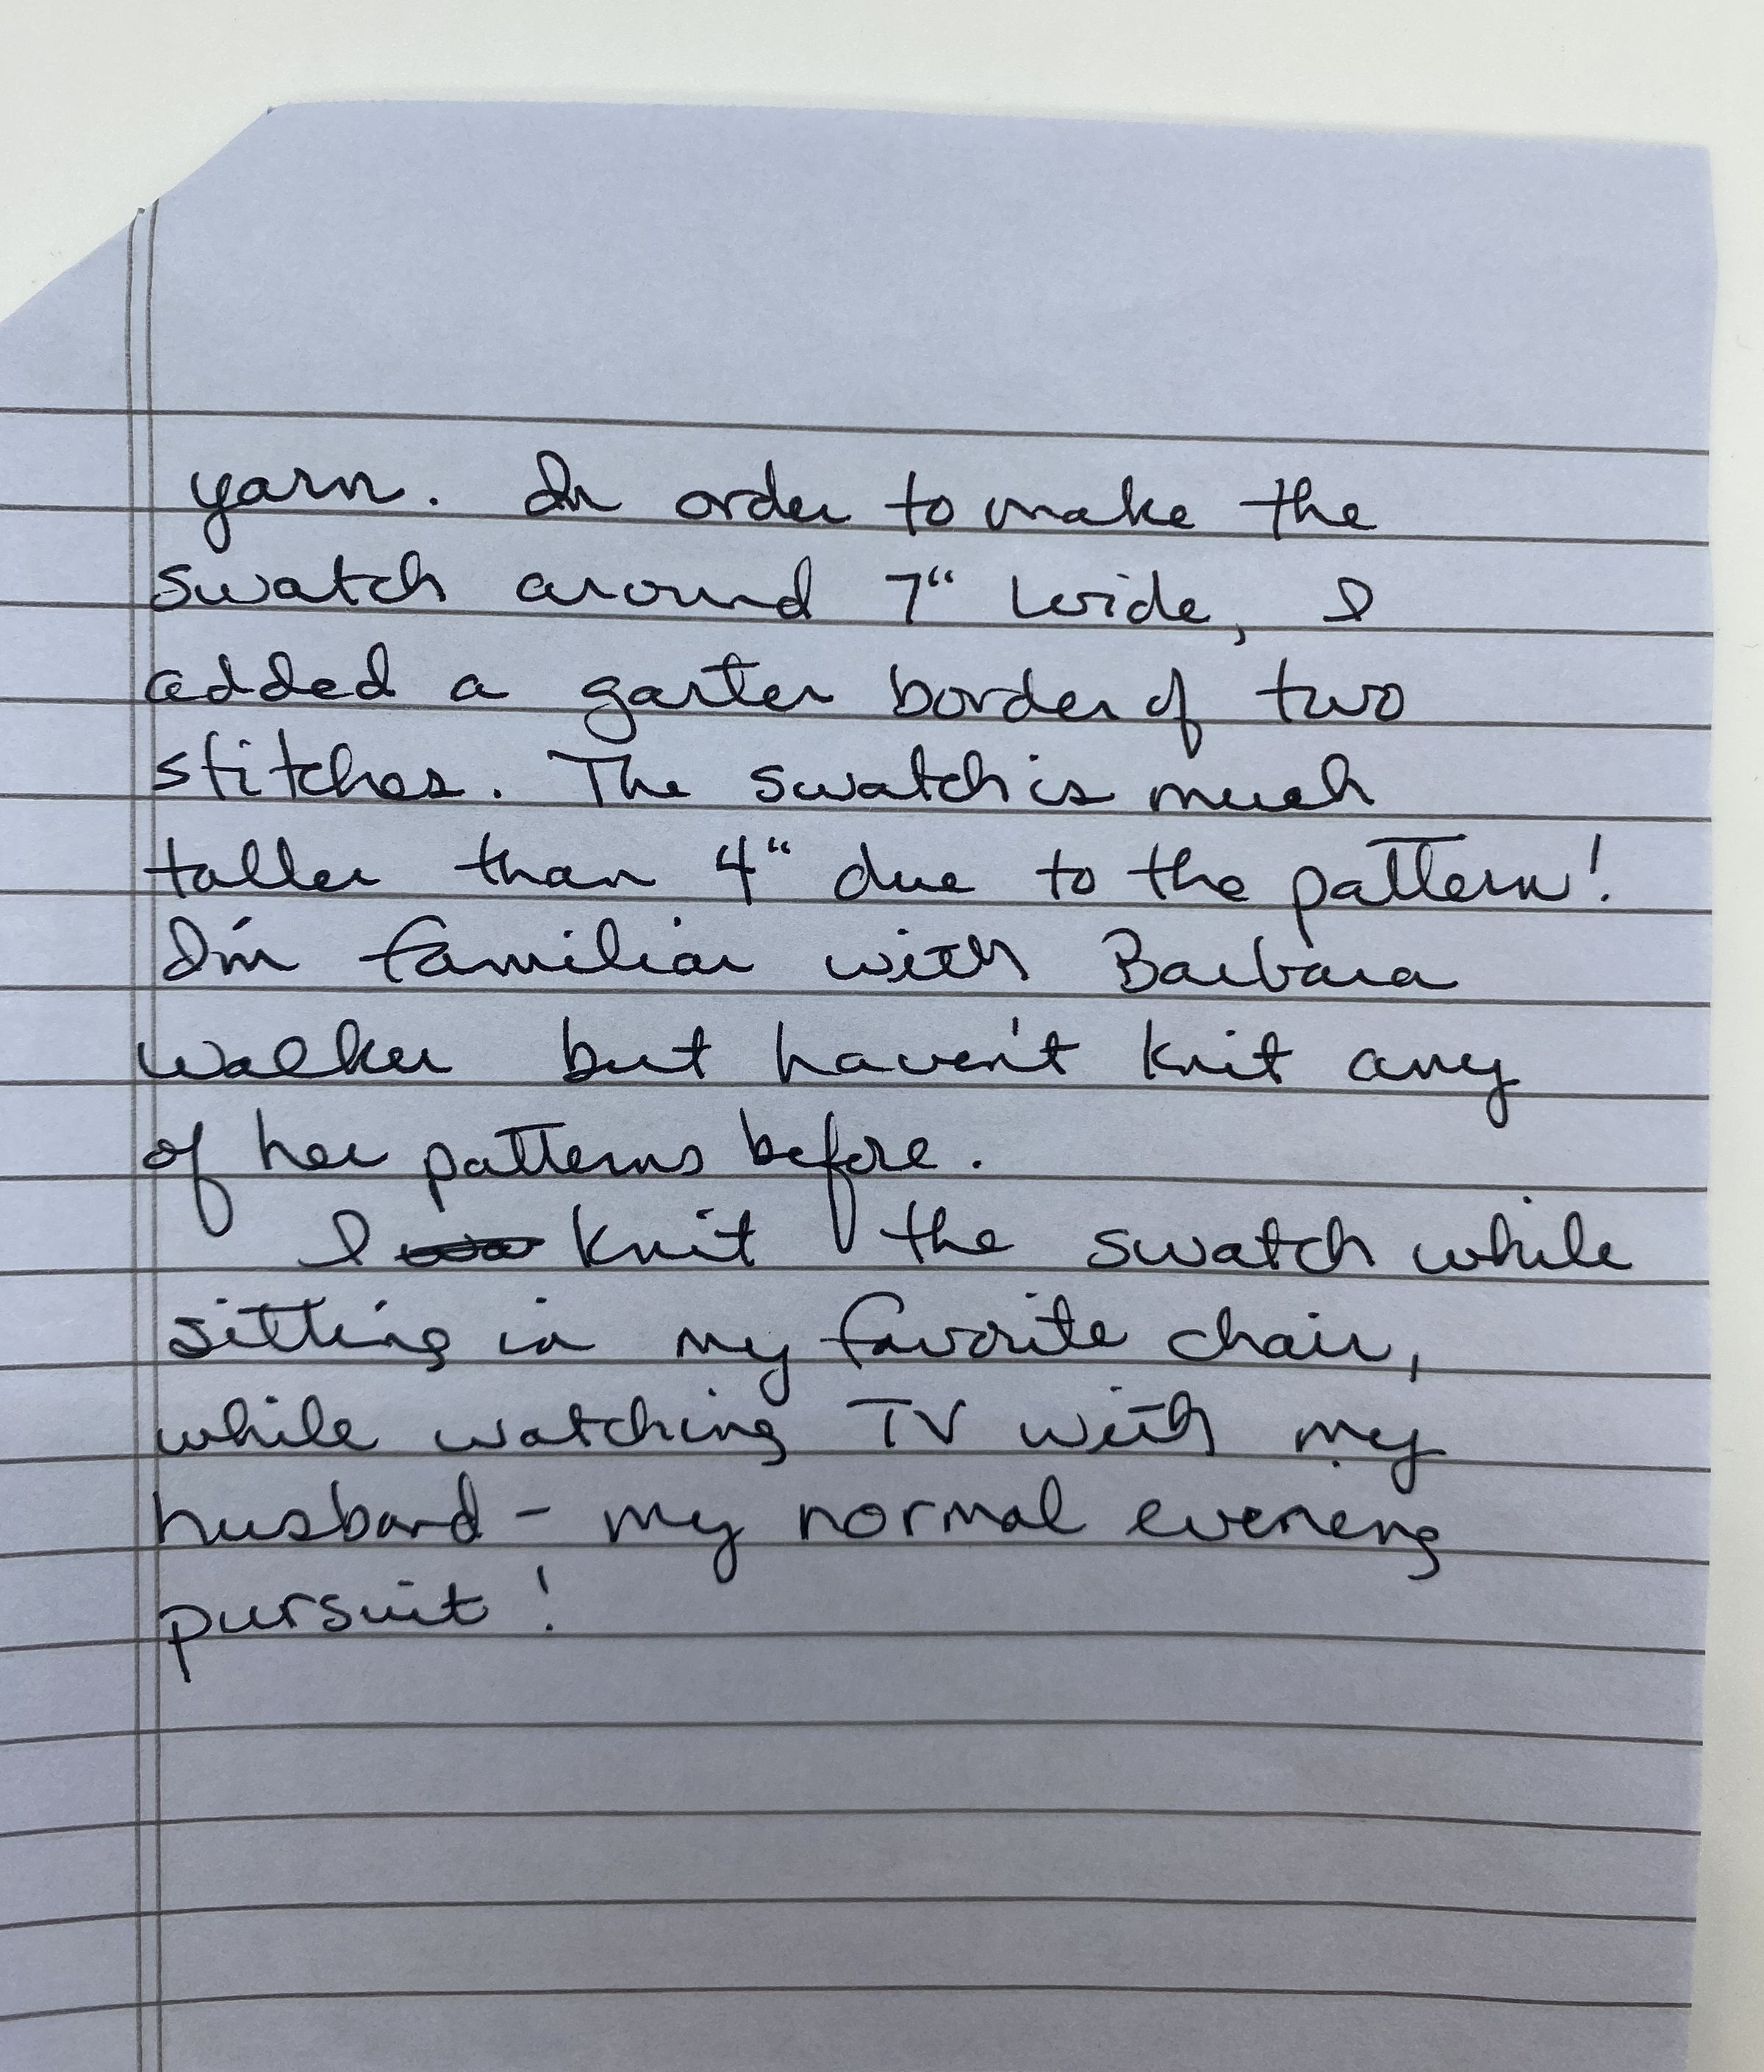 yarn. In order to make the
swatch around 7" wide, I
added a garter border of two
stitches. The swatch is much
taller than 4" due to the pattern!
I'm familiar with Barbara
Walker but haven't knit any
of her patterns before.
I knit the swatch while
sitting in my favorite chair,
while watching TV with my
husband - my normal evening
pursuit!